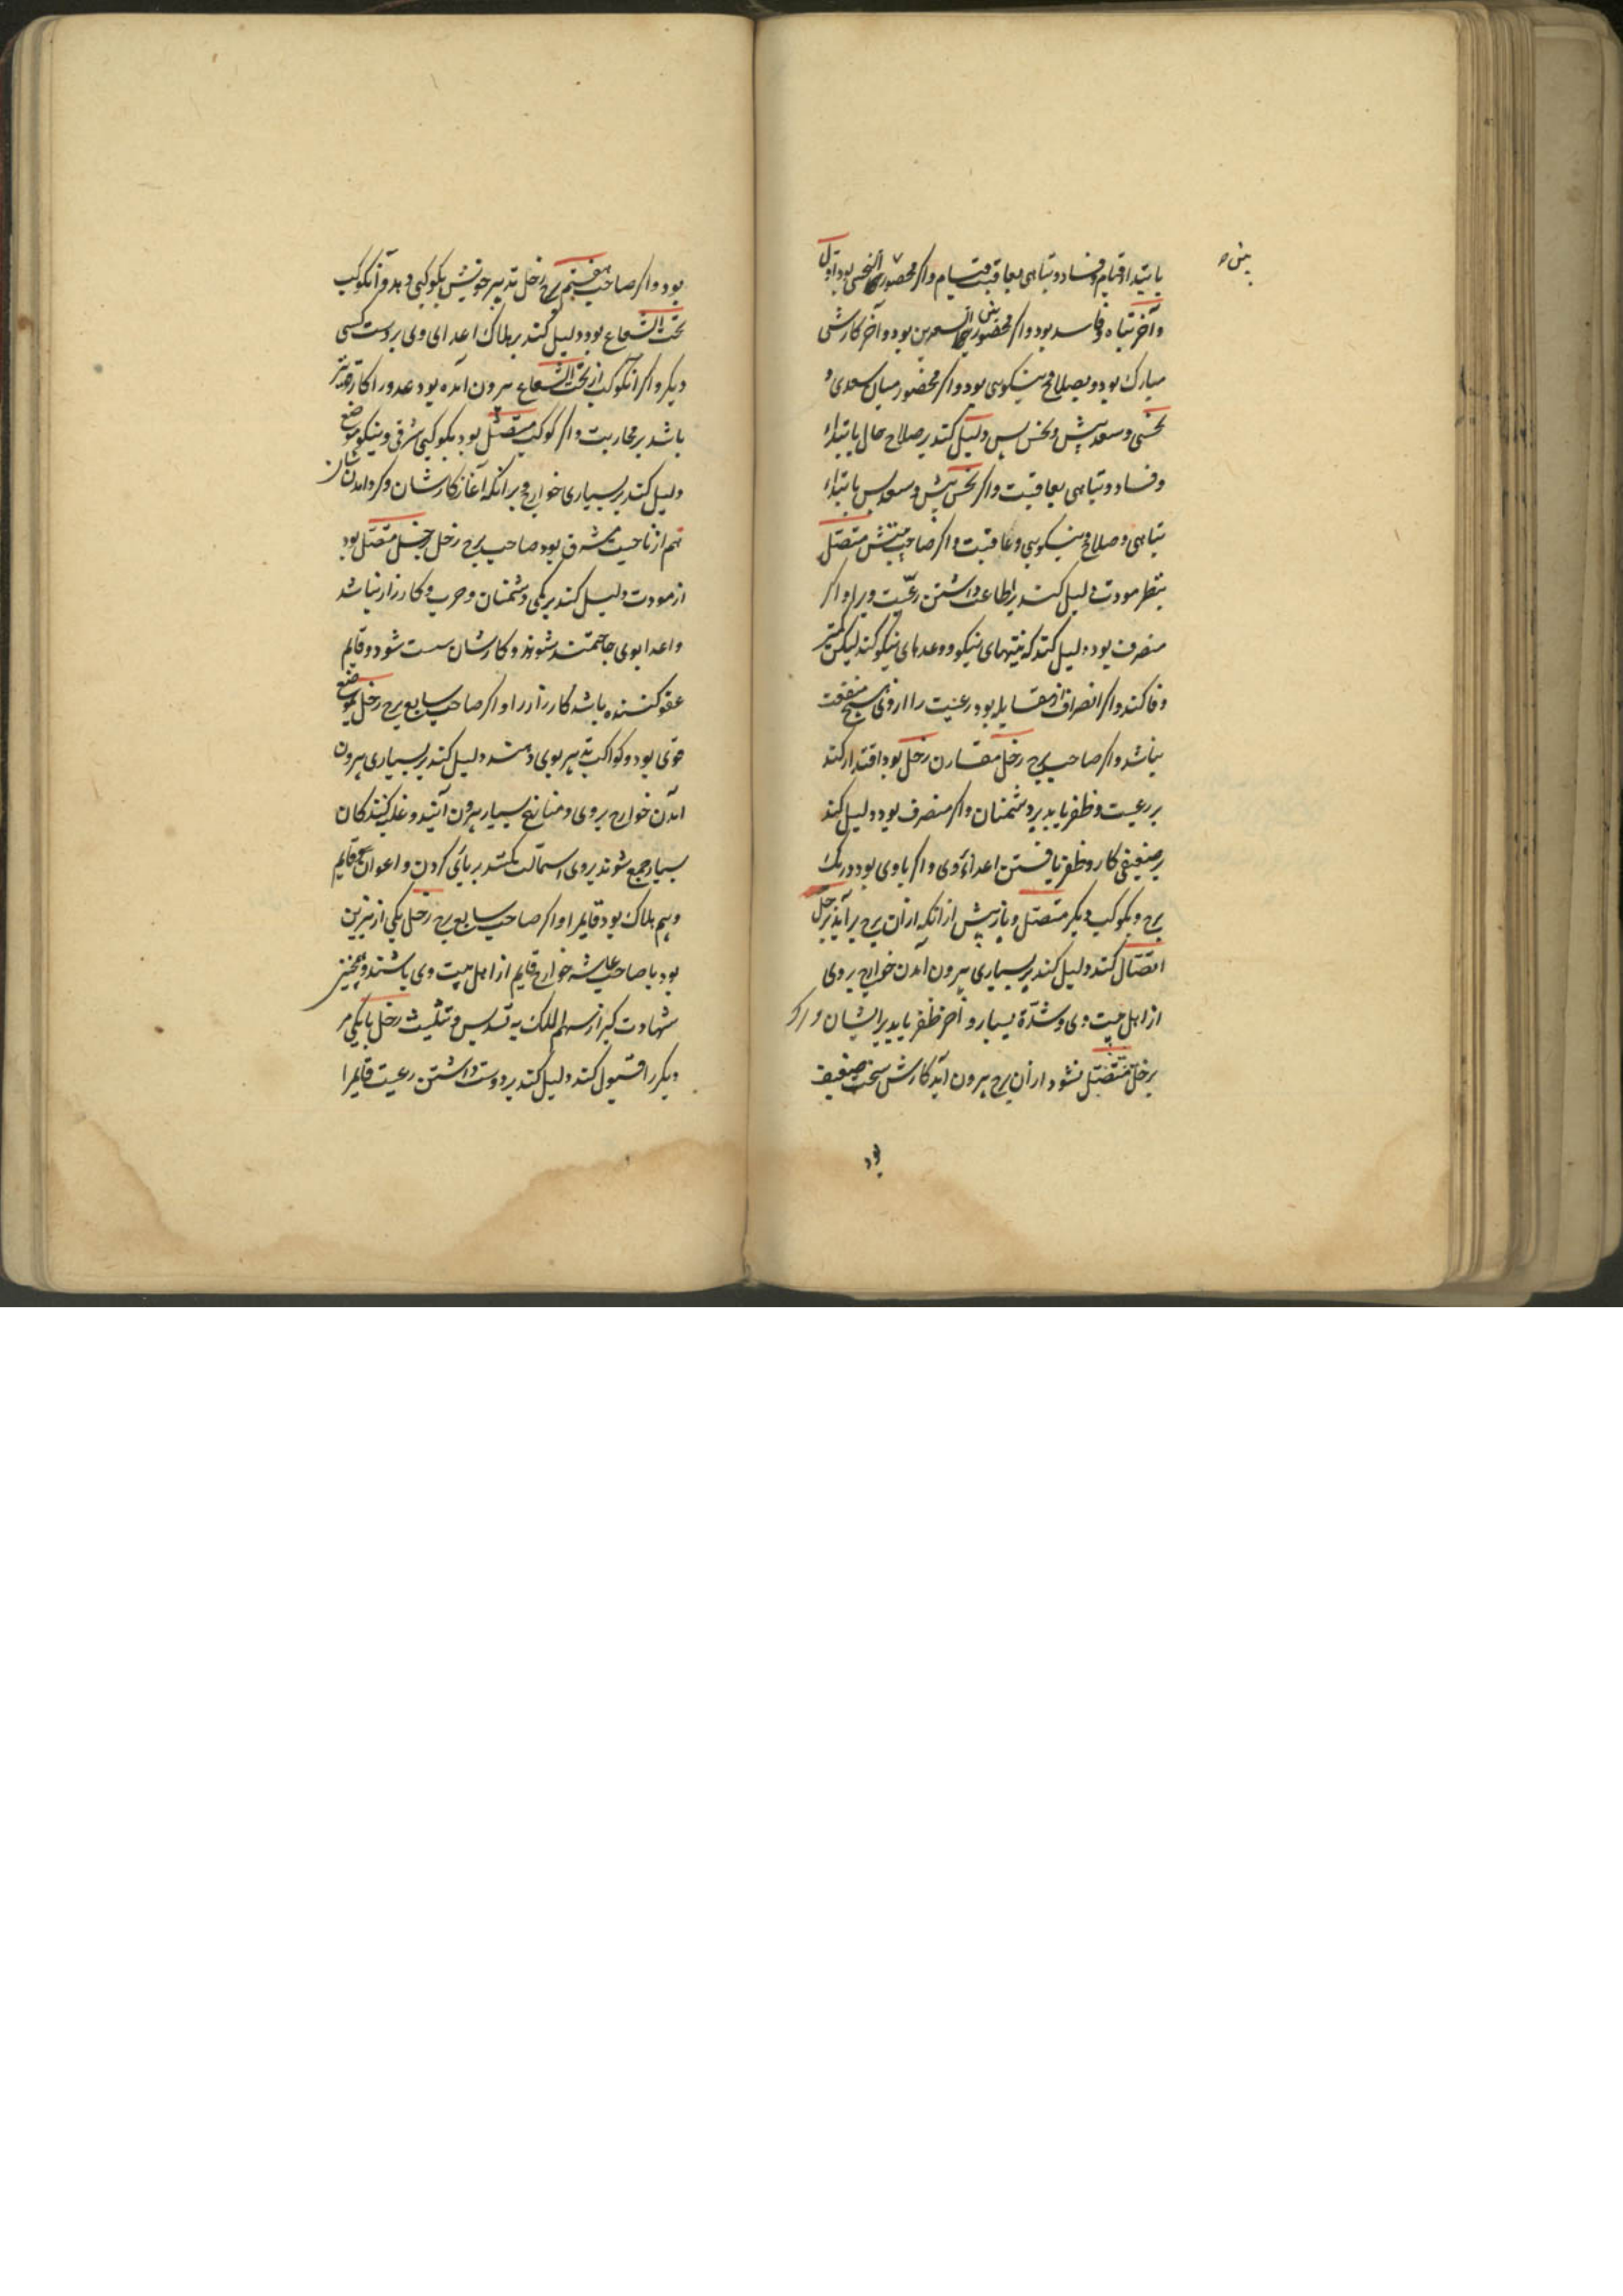 بابتدا قیام و فساد و تباهی بعاقبت قیام و اکر محصور بین النحسین بود اول
و آخر تباه و فاسد بود و اکر محصور بین السعدین بود و آخر کارش
مبارک بود و بصلاح و نیکویی بود و اکر محصور میان سعدی و
نحسی و سعد پیش و نحس پس دلیل کند بر صلاح حال بابتداء
و فساد و تباهی بعاقبت و اکر نحس پیش و سعد پس بابتداء
تباهی و صلاح و نیکویی و عاقبت و اکر صاحب بیتش متصل
بنظر مودت دلیل کند بر اطاعت داشتن رعیت ویرا و اکر
منصرف بود دلیل کند که نیتهای نیکو و وعدهای نیکو کند لیکن کمتر
وفا کند و اکر انصراف از مقابله بود رعیت را از وی هیچ منفعت
نباشد و اکر صاحب برج زحل مقارن زحل بود اقتدار کند
بر رعیت و ظفر یابد بر دشمنان و اکر منصرف بود دلیل کند
بر ضعیفی کار و ظفر یافتن اعداء وی و اکر با وی بود در یک
برج و بکوکب دیکر متصل و باز پیش از آنکه از آن برج برآید بزحل
اتصال کند دلیل کند بر بسیاری بیرون آمدن خوارج بر وی
از اهل بیت وی و شدة بسیار و آخر ظفر یابد بر ایشان و اکر
بزحل متصل نشود از آن برج بیرون آید کارش سخت ضعیف
بود
بود و اکر صاحب هفتم برج زحل تدبیر خویش بکوکبی دهد و آنکوکب
تحت الشعاع بود دلیل کند بر هلاک اعدای وی بر دست کسی
دیکر و اکر آنکوکب از تحت الشعاع بیرون آمده بود عدو را کار
باشد بر محاربت و اکر کوکب متصل بود بکوکبی شرقی و نیکو موضع
دلیل کند بر بسیاری خوارج و بر آنکه آغاز کارشان و کرد آمدنشان
هم از ناحیت مشرق بود صاحب برج زحل بزحل متصل بود
از مودت دلیل کند بر یکی دشمنان و حرب و کارزار نباشد
و اعدا بوی حاجتمند شوند و کارشان سست شود و قایم
عفو کننده باشد کارزار را و اکر صاحب سابع برج زحل بموضع
قوی بود و کواکب تدبیر بوی دهند دلیل کند بر بسیاری بیرون
آمدن خوارج بر وی و منازع بسیار بیرون آیند و غلبه کنندکان
بسیار جمع شوند بر وی استمالت کنند بر کردن و اعوان قایم
و بیم هلاک بود قایم را و اکر صاحب سابع برج زحل یکی از نیرین
بود با صاحب عاشر خوارج قایم از اهل بیت وی باشند و همچنین
شهادت کیر از سهم الملک به تسدیس و تثلیث زحل با یکی مر
دیکر را قبول کند دلیل کند بر دوست داشتن رعیت قایم را